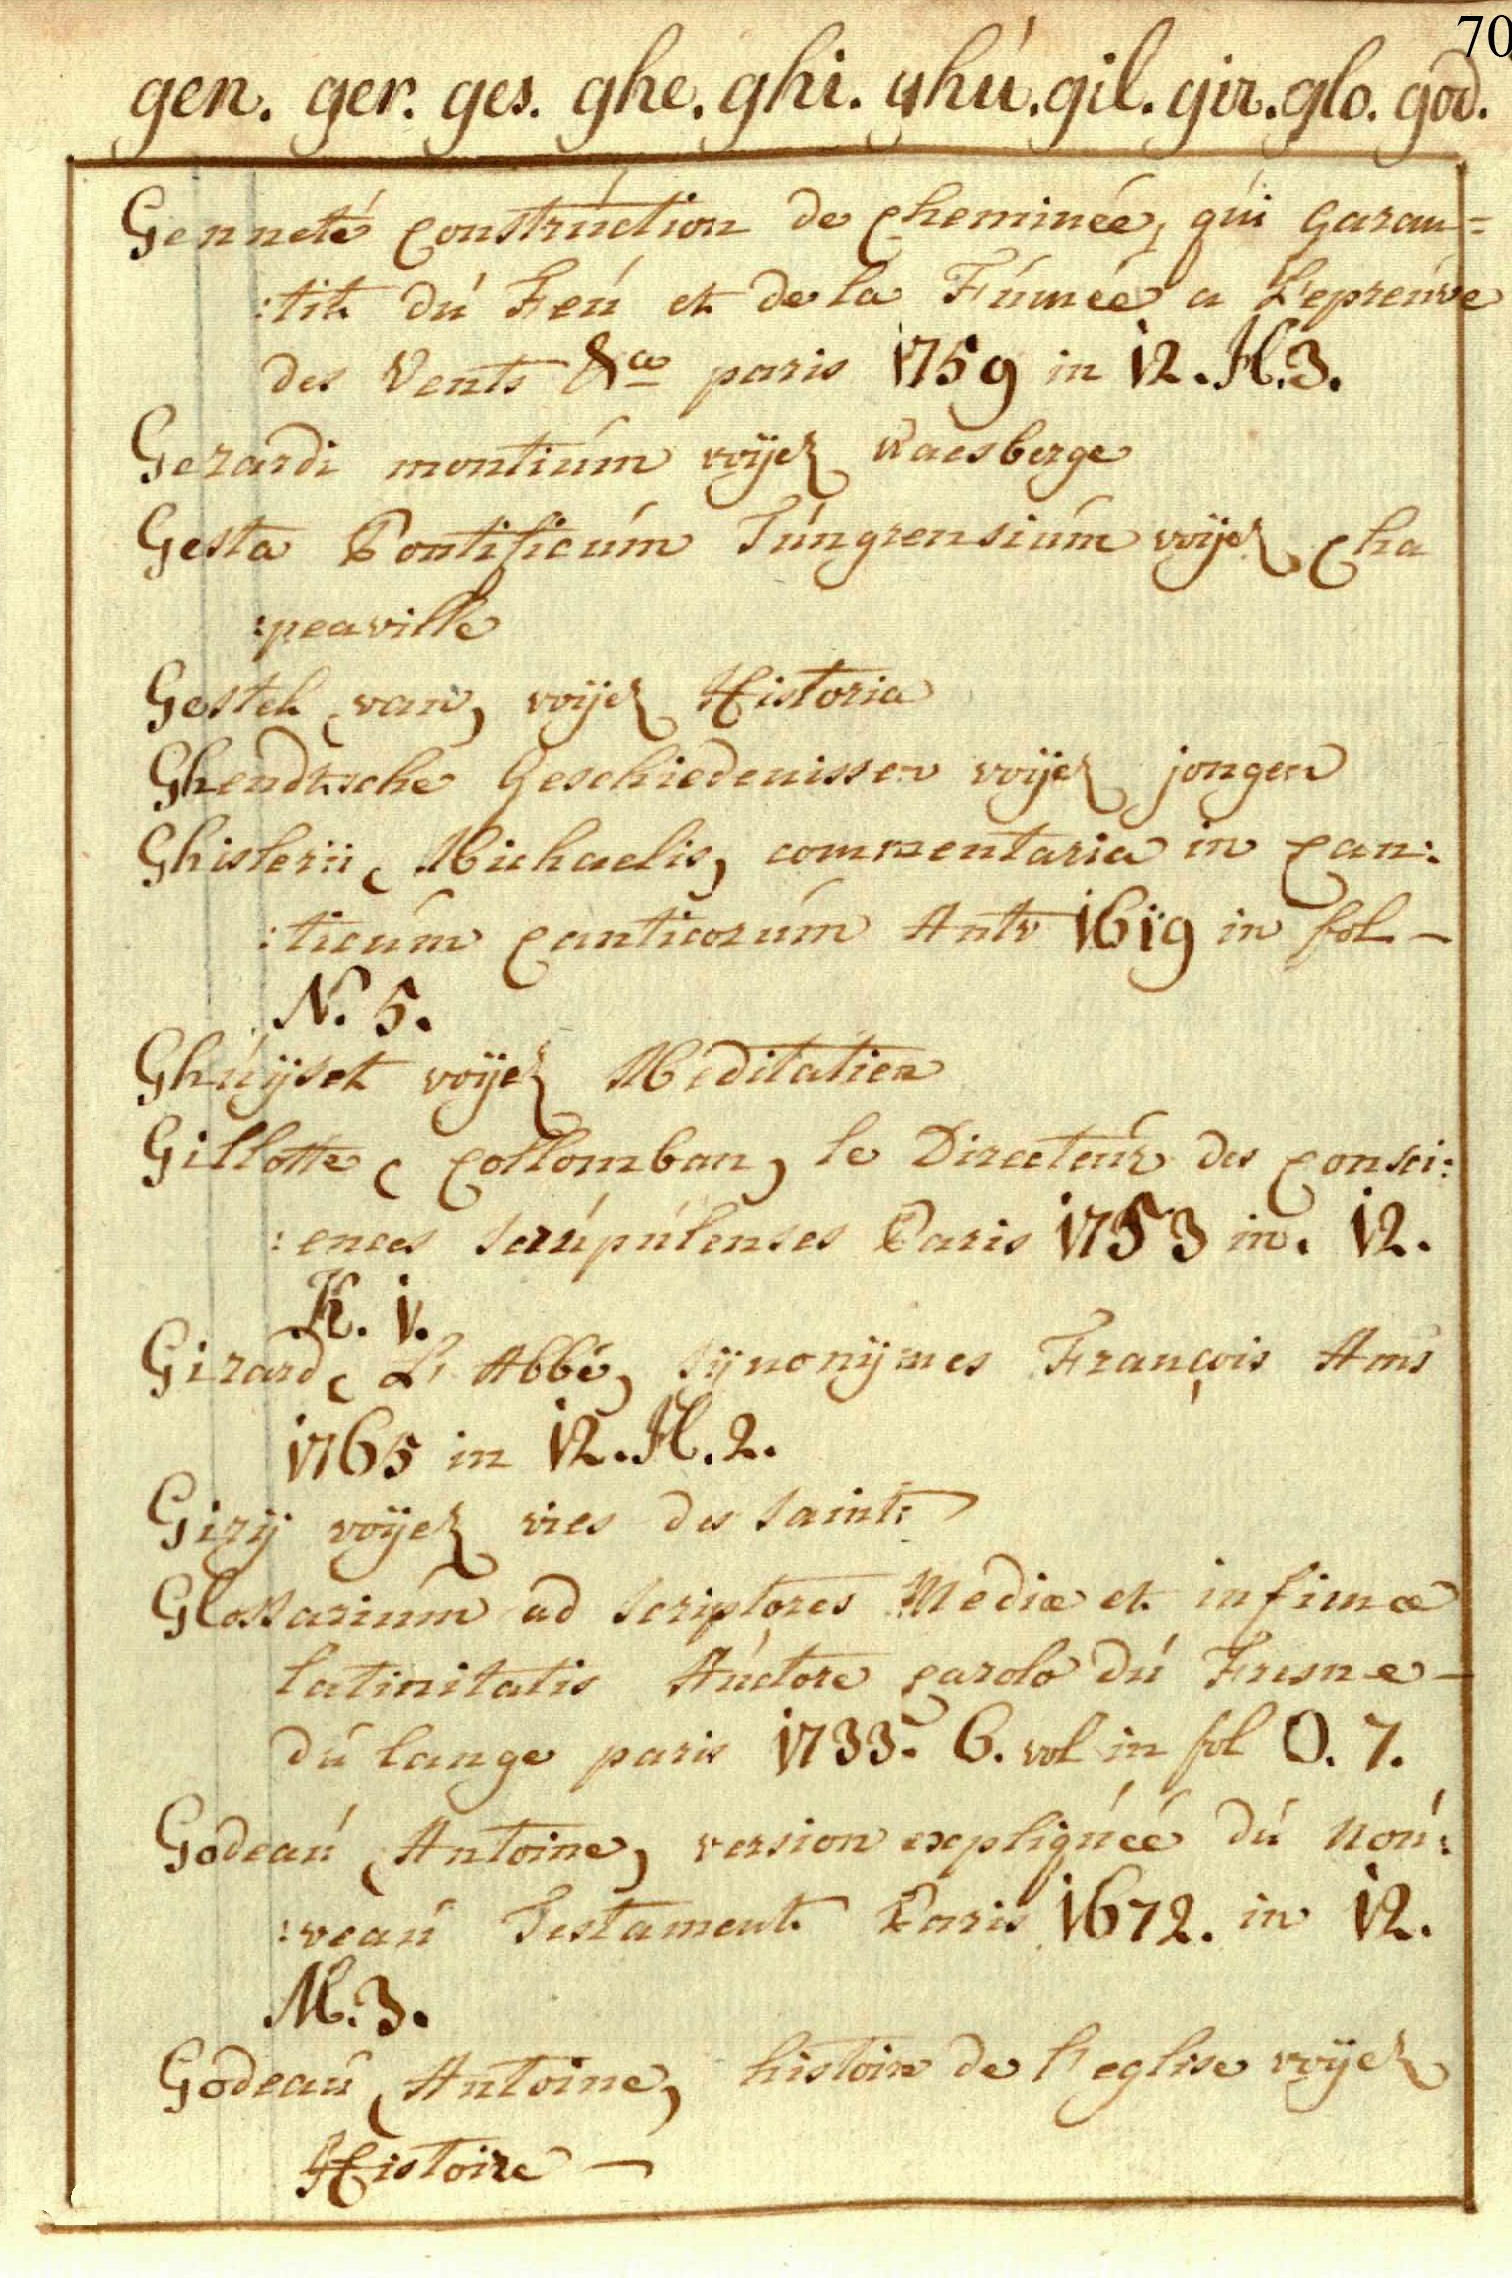 70
gen. ger. ges. ghe. ghi. ghú. gil. gir. glo. god.
Genneté Constrúction de Cheminée, qúi Garan=
:tit dú Feú et de la Fúmée a L'epreúve
des Vents &ca paris 1759 in 12. H. 3.
Gerardi montiúm voÿez Waesberge
Gesta Pontificúm Túngrensiúm voÿez Cha
:peaville
Gestel (van) voÿez Historia
Ghendtsche Geschiedenissen voÿez jongen
Ghislerii (Michaelis) commentaria in Can:
:ticúm Canticorúm Antv 1619 in fol -
N. 5.
Ghúÿset voÿez Meditatien
Gillotte (Collomban) le Directeúr des Consci:
:ences Scrúpúlenses Paris 1753 in. 12.
K. 1.
Girard (L'Abbé) Sÿnonÿmes François Ams
1765 in 12. H. 2.
Girÿ voÿez vies des Saints
Glossariúm ad Scriptores Mediæ et infimæ
latinitatis Aúctore Carolo dú Fresne -
dú lange paris 1733. 6. vol in fol O. 7.
Godeaú (Antoine) version expliqúéé dú Noú:
:veaú Testament Paris 1672. in 12.
M. 3.
Godeaú (Antoine) histoire de l'eglise voÿez
Histoire -